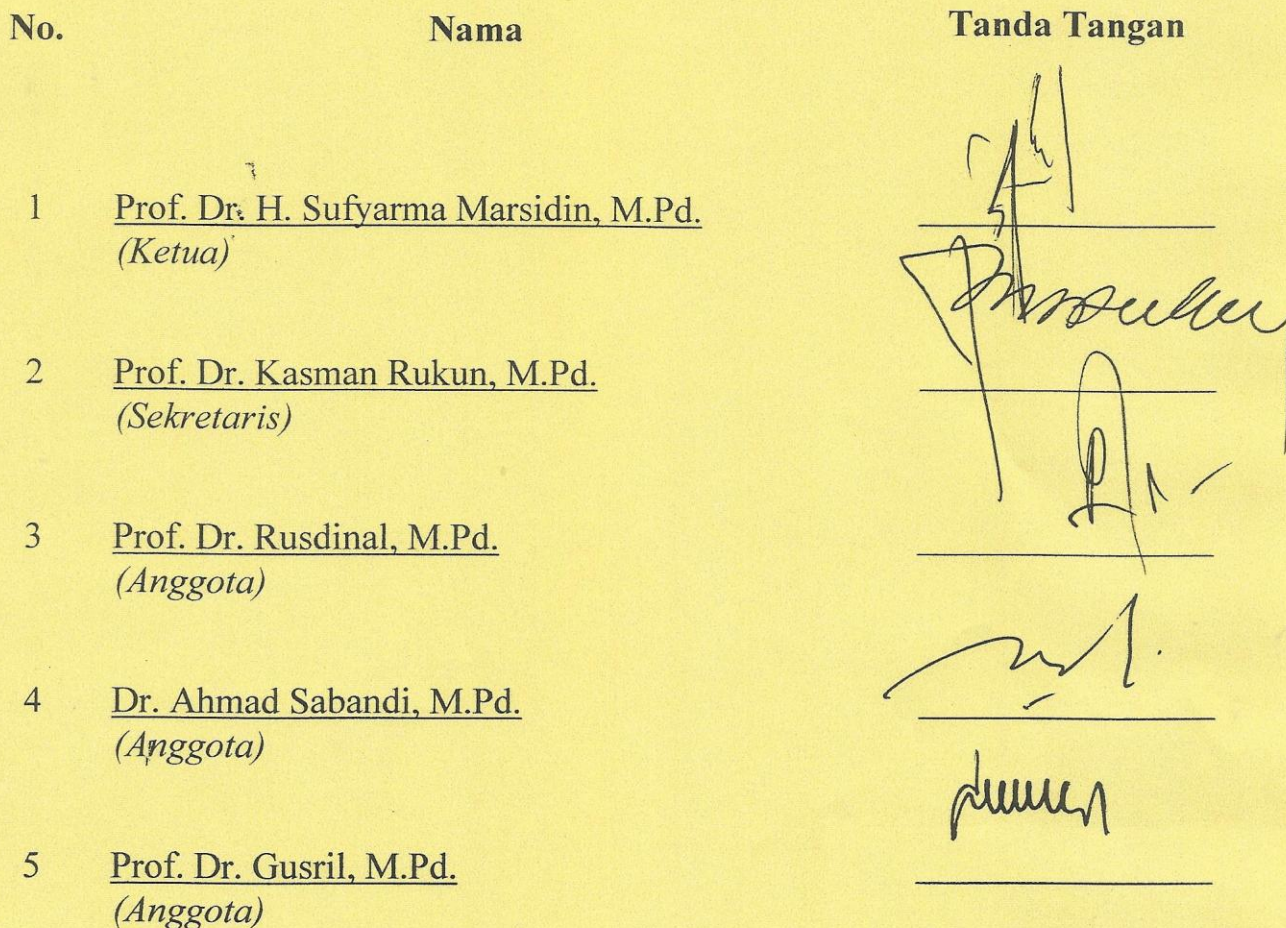 No. Nama Tanda Tangan
1 Prof. Dr. H. Sufyarma Marsidin, M.Pd.
(Ketua)
2 Prof. Dr. Kasman Rukun, M.Pd.
(Sekretaris)
3 Prof. Dr. Rusdinal, M.Pd.
(Anggota)
4 Dr. Ahmad Sabandi, M.Pd.
(Anggota)
5 Prof. Dr. Gusril, M.Pd.
(Anggota)